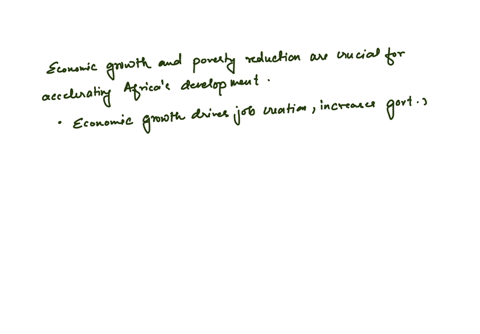 Economic growth and poverty reduction are crucial for
accelerating Africa's development.
• Economic growth drives job creation, increases govt.,